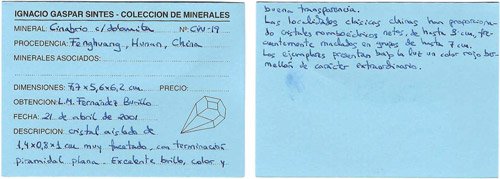 IGNACIO GASPAR SINTES - COLECCION DE MINERALES
MINERAL: Cinabrio c/dolomita Nº CVV-19
PROCEDENCIA: Fenghuang, Hunan, China
MINERALES ASOCIADOS:
DIMENSIONES: 7,7 x 5,6 x 6,2 cm. PRECIO:
OBTENCION: L.M. Fernández Burillo
FECHA: 21 de abril de 2001
DESCRIPCION: cristal aislado de
1,4 x 0,8 x 1 cm muy facetado, con terminación
piramidal plana. Excelente brillo, color y
buena transparencia.
Las localidades clásicas chinas han proporciona-
do cristales romboédricos netos, de hasta 3 cm, fre-
cuentemente maclados en grupos de hasta 7 cm.
Los ejemplares presentan bajo la luz un color rojo ber-
mellón de carácter extraordinario.